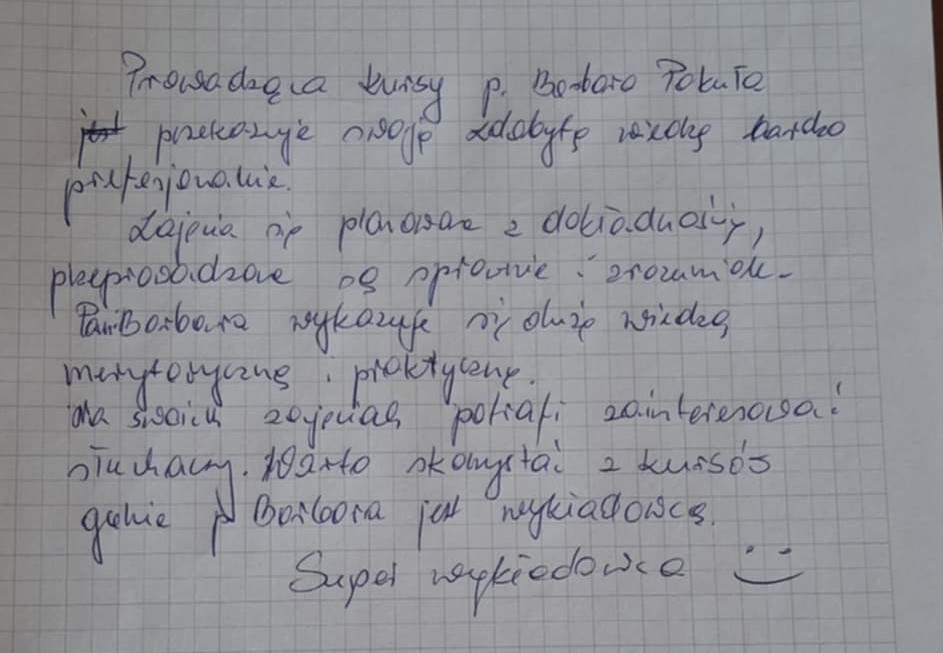 Prowadząca kursy p. Barbara Pokuta
jest przekazuje swoją zdobytą wiedzę bardzo
profesjonalnie.
Zajęcia są planowane z dokładnością,
przeprowadzane są sprawnie i zrozumiale.
Pani Barbara wykazuje się dużą wiedzą
merytoryczną i praktyczną.
Na swoich zajęciach potrafi zainteresować
słuchaczy. Warto skorzystać z kursów
gdzie p Barbara jest wykładowcą.
Super wykładowca